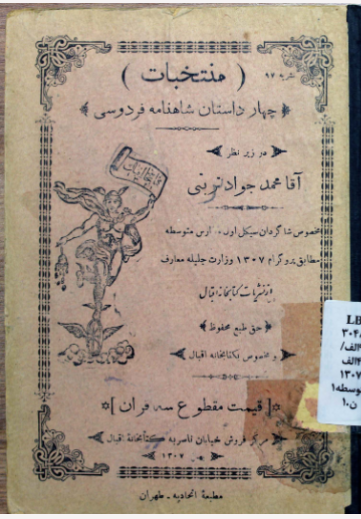 نمره ۹۲
( منتخبات )
چهار داستان شاهنامه فردوسی
در زیر نظر
آقا محمد جواد تربتی
مخصوص شاگردان سیکل اول مدارس متوسطه
مطابق پروگرام ۱۳۰۷ وزارت جلیله معارف
از نشریات کتابخانه اقبال
حق طبع محفوظ
و مخصوص بکتابخانه اقبال
[ قیمت مقطوع سه قران ]
مرکز فروش خیابان ناصریه کتابخانه اقبال
۱۳۰۷
مطبعة اتحادیه ـ طهران
LB
۳۰۴
الف/
الف
۱۳۰۷
متوسطه۱
ن.۱